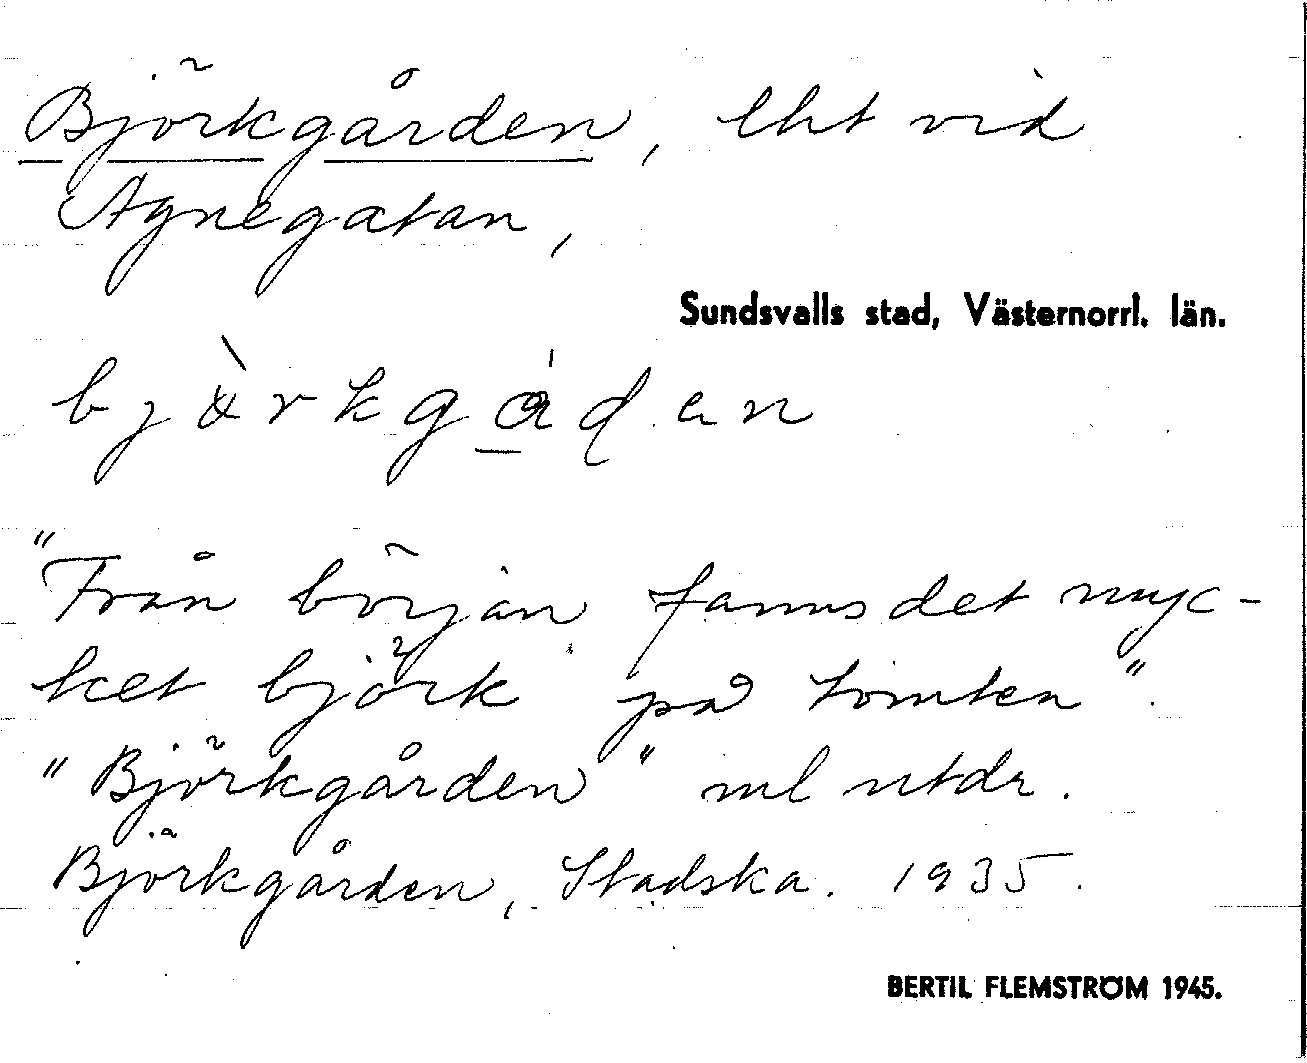 Björkgården, lht vid
Agnegatan,
Sundsvalls stad, Västernorrl. län.
"Från början fanns det myc-
ket björk på tomten".
"Björkgården" ml utdr.
Björkgården, Stadska. 1935.
BERTIL FLEMSTRÖM 1945.